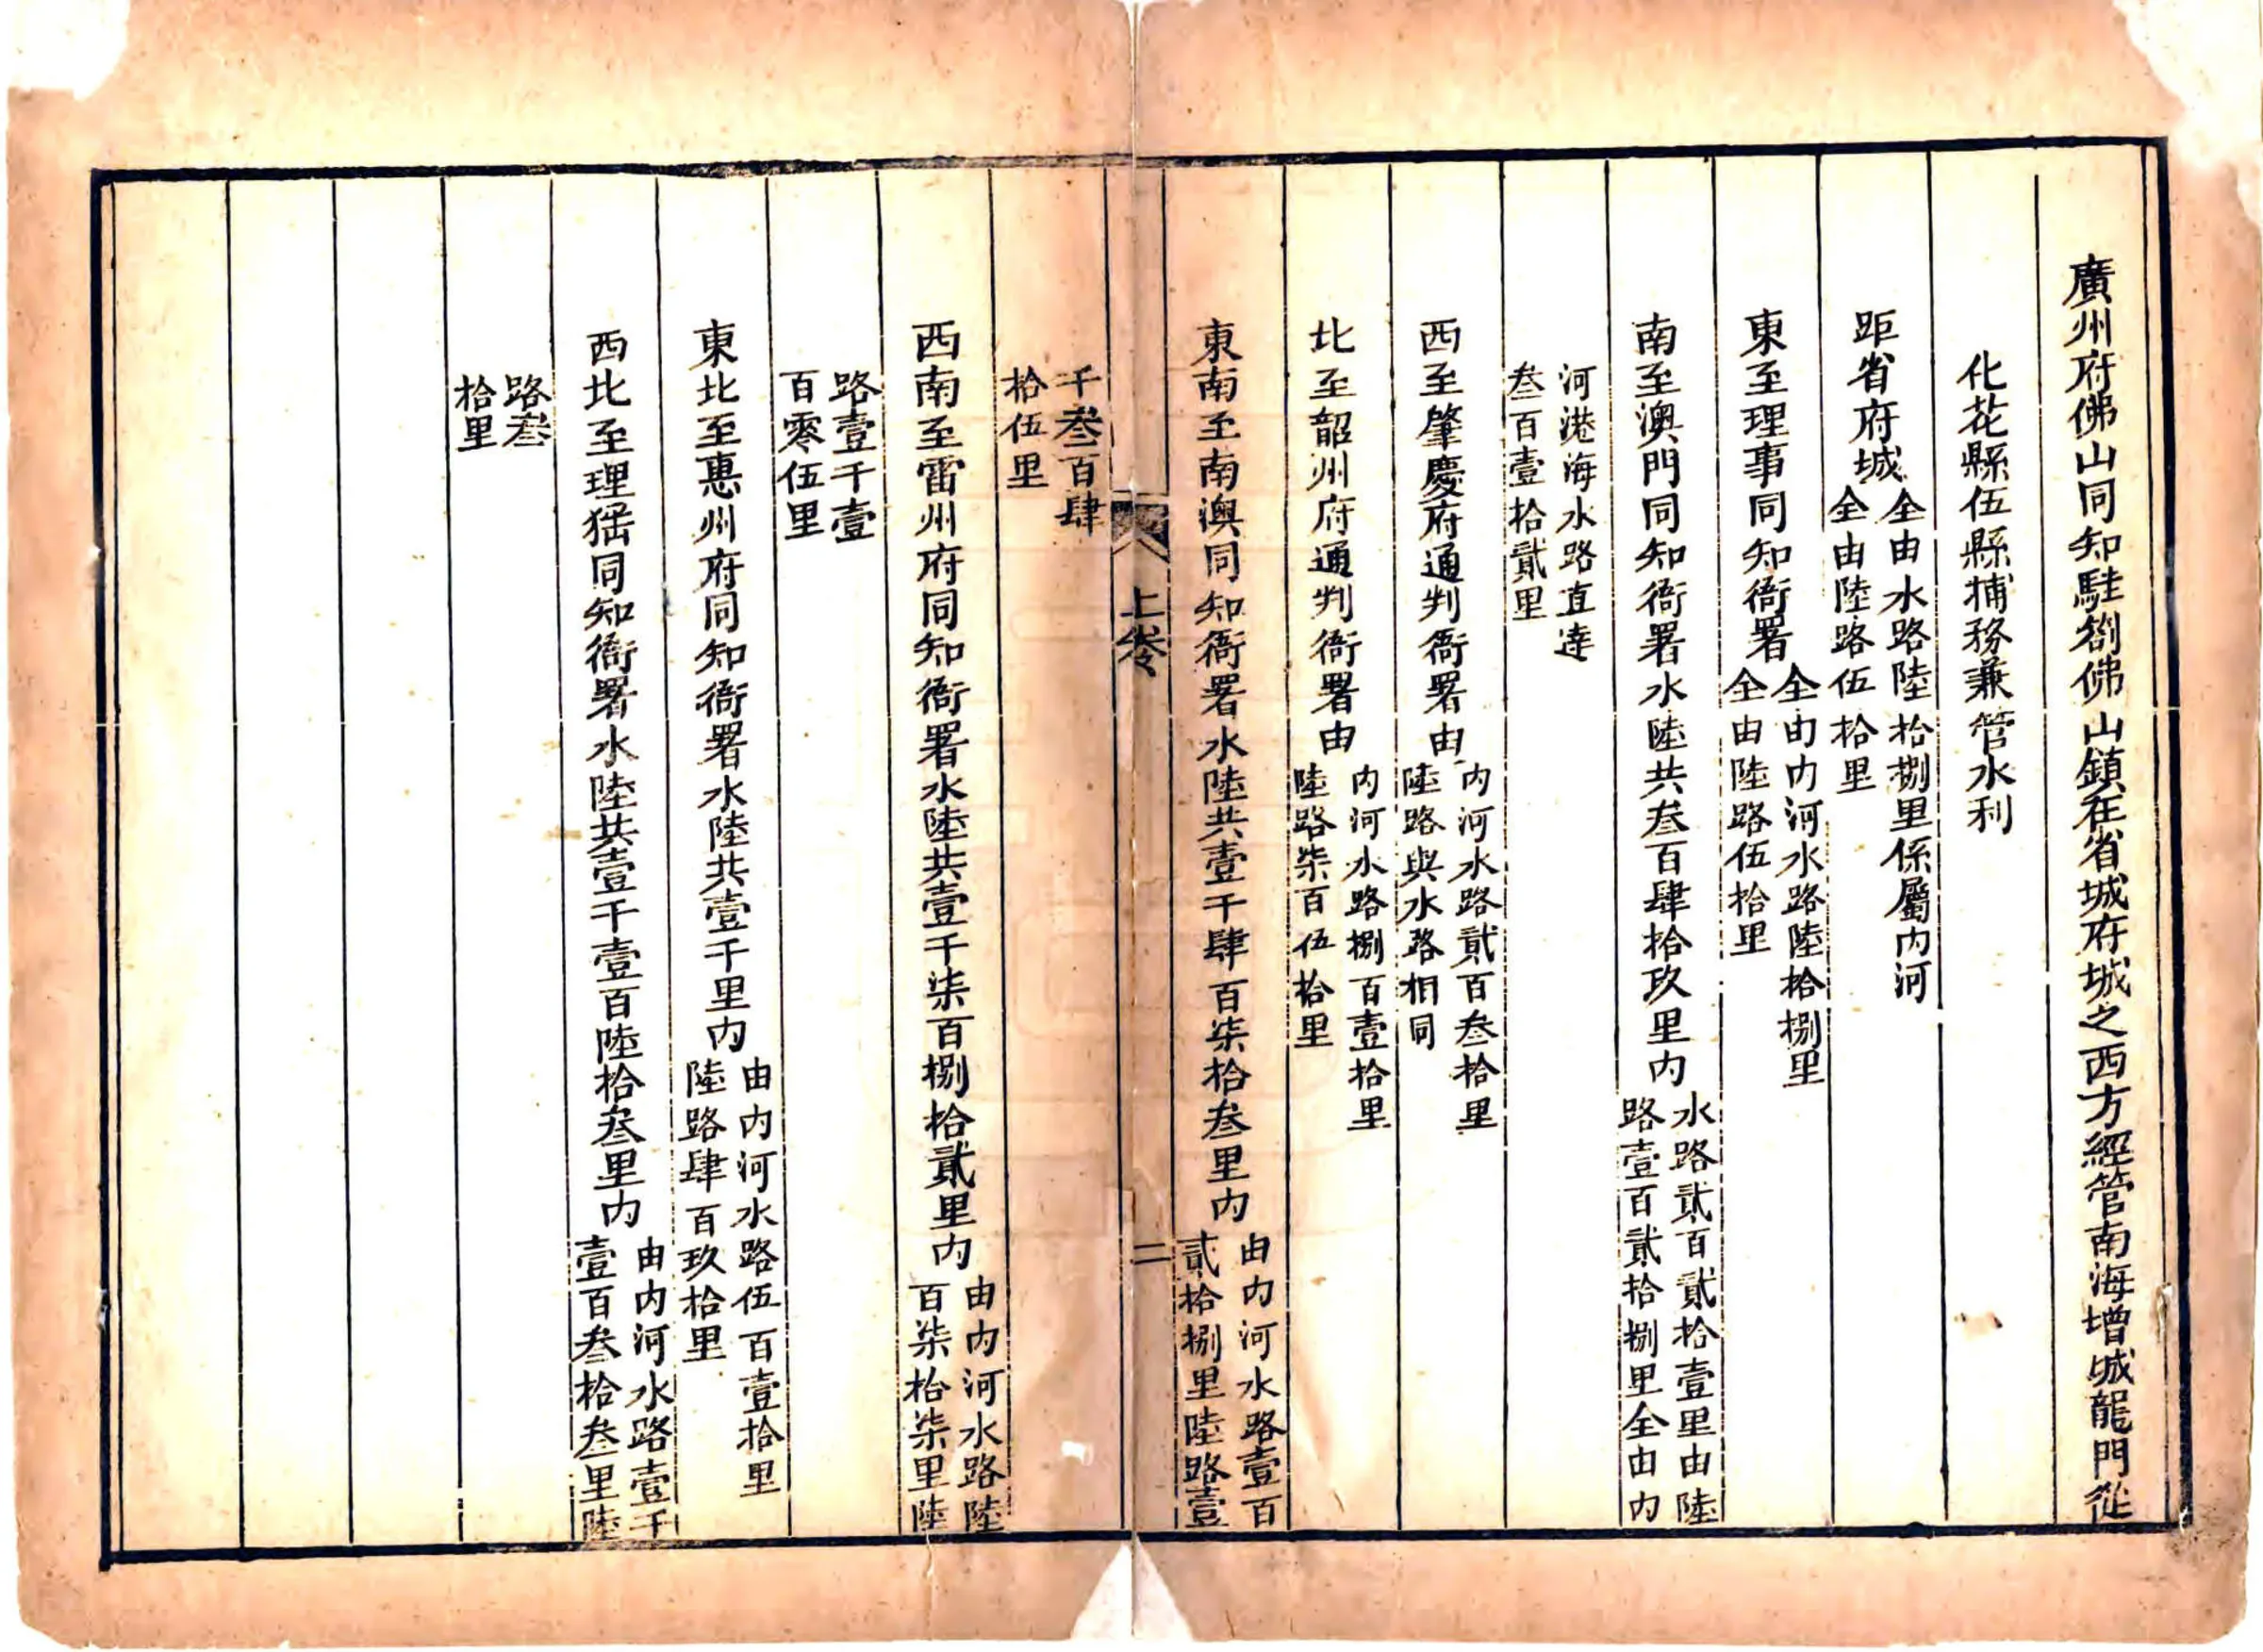 廣州府佛山同知駐劄佛山鎮在省城府城之西方經管南海增城龍門從
化花縣伍縣捕務兼管水利
距省府城
仝由水路陸拾捌里係屬内河
仝由陸路伍拾里
東至理事同知衙署
仝由内河水路陸拾捌里
仝由陸路伍拾里
南至澳門同知衙署水陸共叁百肆拾玖里内
水路貳百貳拾壹里由陸
路壹百貳拾捌里仝由内
河港海水路直達
叁百壹拾貳里
西至肇慶府通判衙署由
内河水路貳百叁拾里
陸路與水路相同
北至韶州府通判衙署由
内河水路捌百壹拾里
陸路柒百伍拾里
東南至南澳同知衙署水陸共壹千肆百柒拾叁里内
由内河水路壹百
貳拾捌里陸路壹
上卷
二
千叁百肆
拾伍里
西南至雷州府同知衙署水陸共壹千柒百捌拾貳里内
由内河水路陸
百柒拾柒里陸
路壹千壹
百零伍里
東北至惠州府同知衙署水陸共壹千里内
由内河水路伍百壹拾里
陸路肆百玖拾里
西北至理猺同知衙署水陸共壹千壹百陸拾叁里内
由内河水路壹千
壹百叁拾叁里陸
路叁
拾里